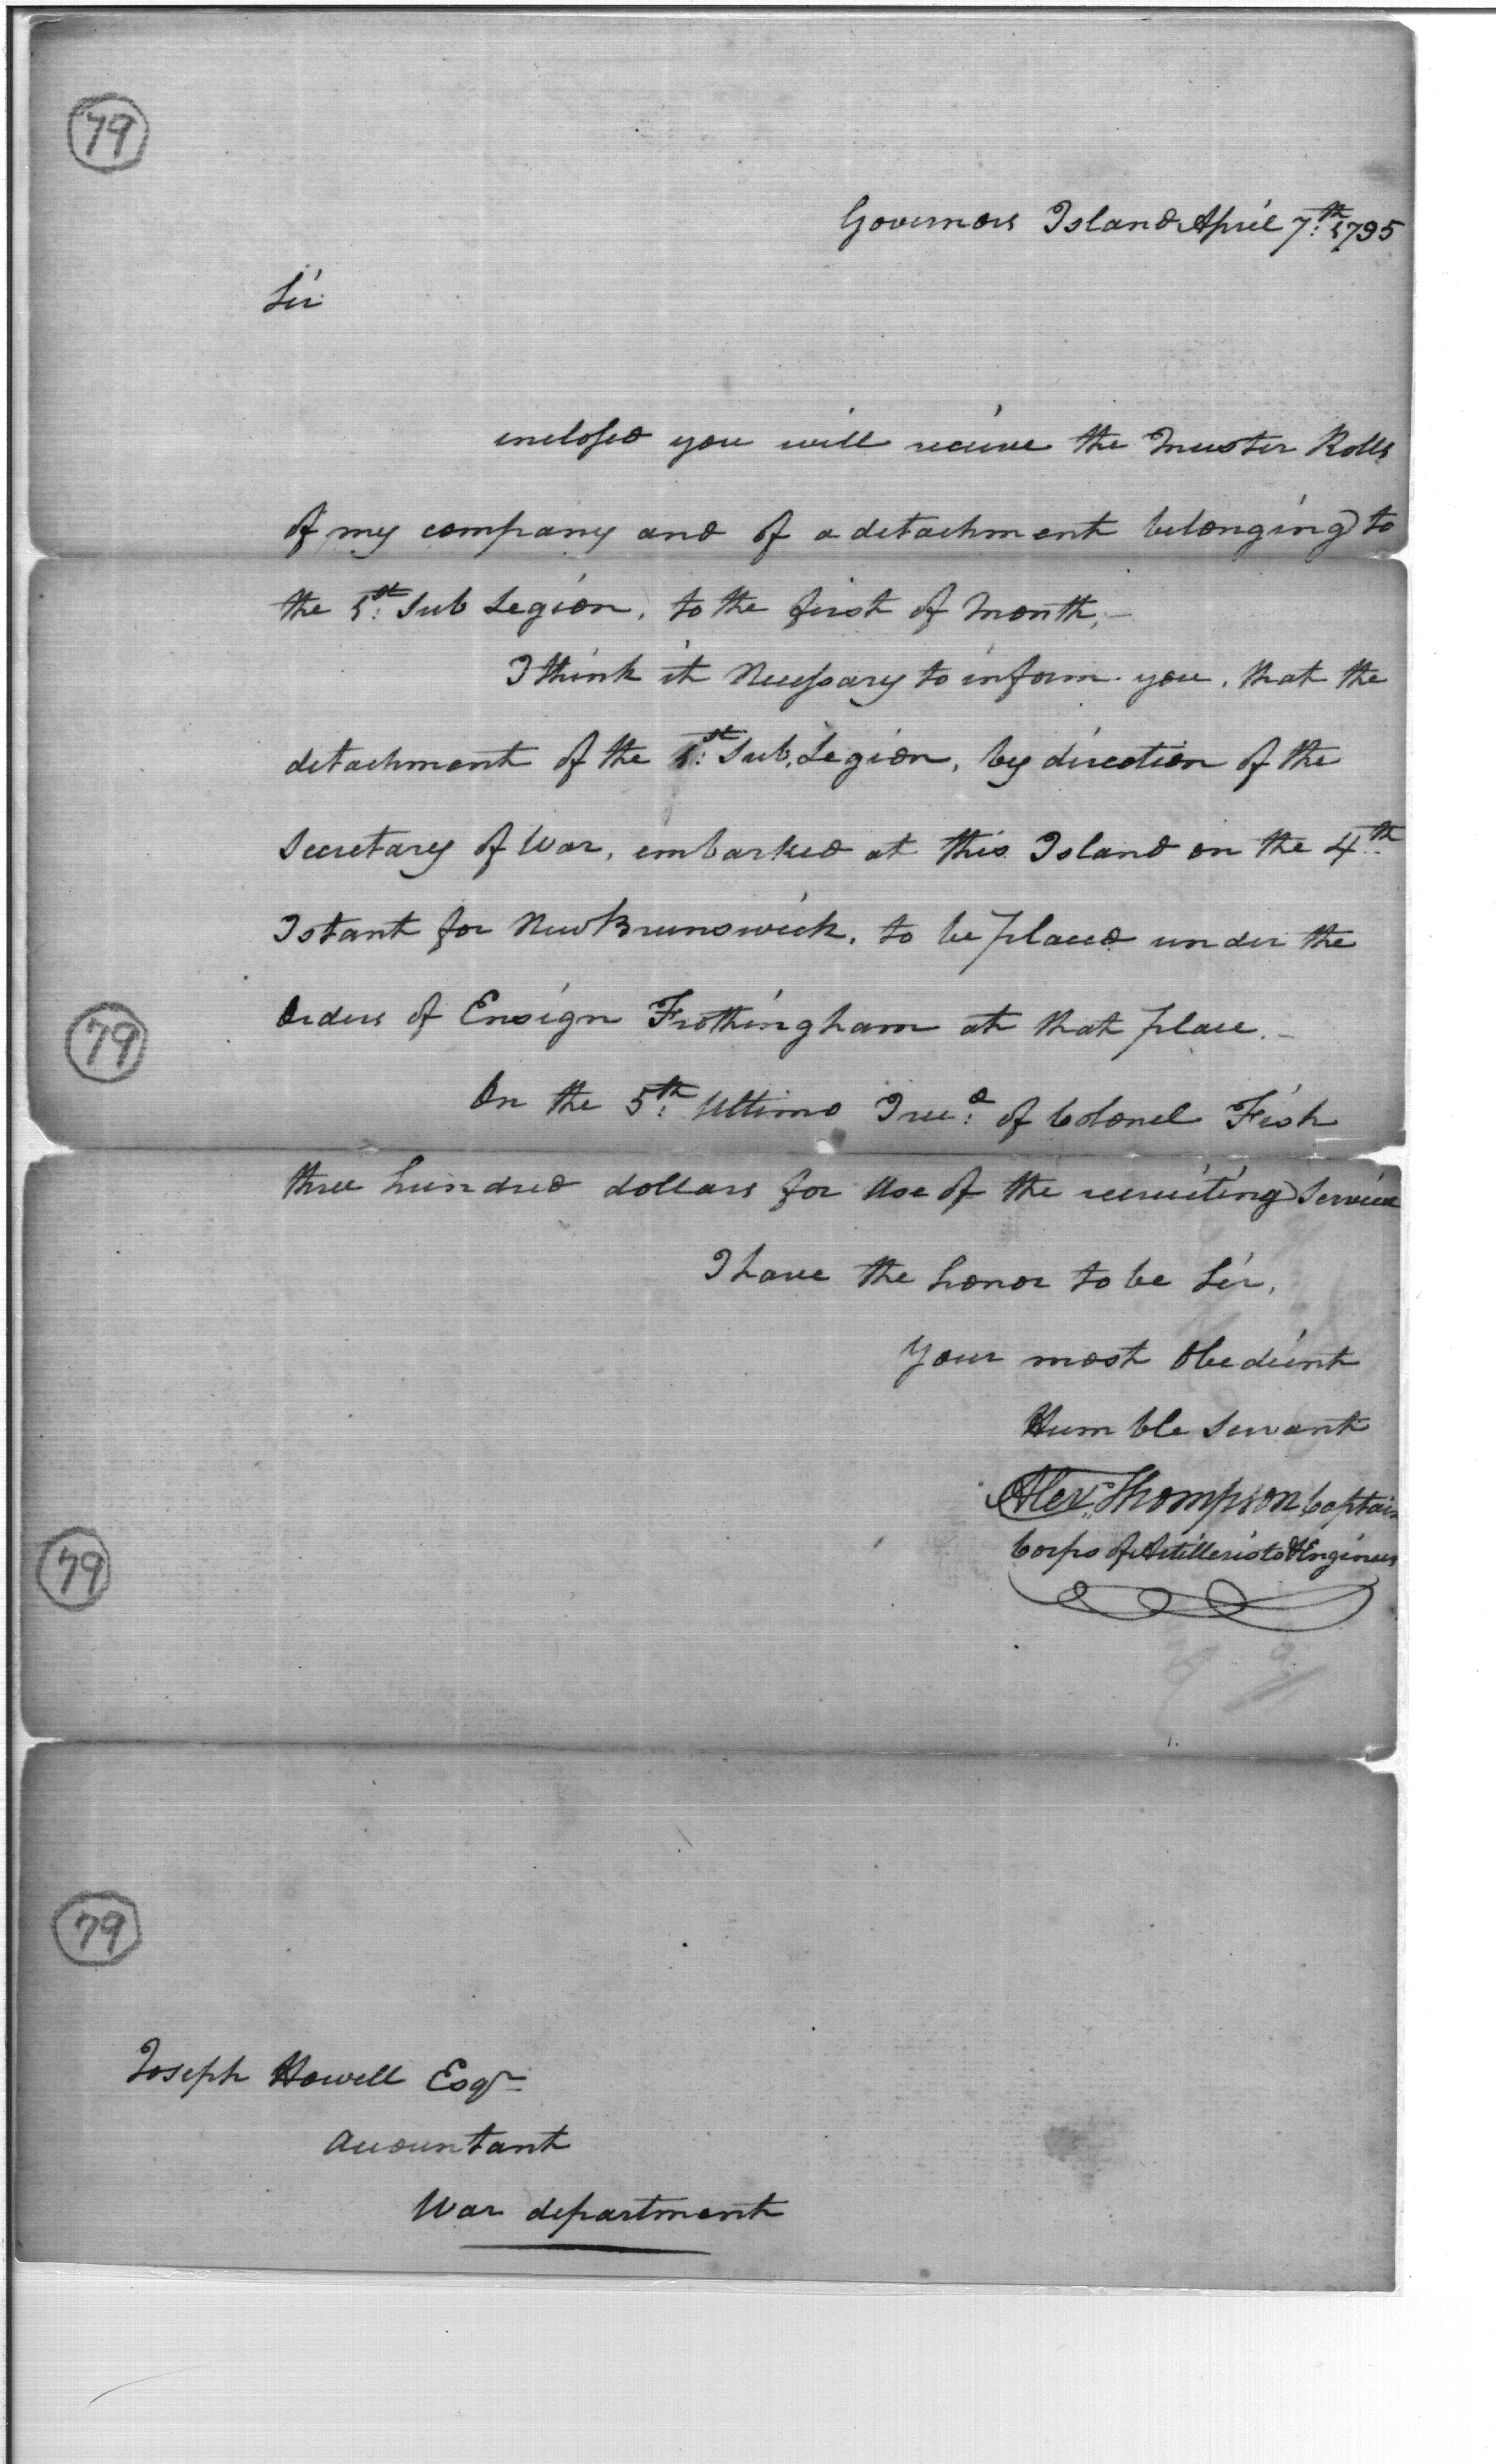 79
Governors Island April 7th: 1795
Sir
inclosed you will receive the Muster Rolls
of my company and of a detachment belonging to
the 1st: Sub Legion, to the first of Month,—
I think it Necessary to inform you, that the
detachment of the 1st: Sub. Legion, by direction of the
Secretary of War, embarked at this Island on the 4th
Istant for New Brunswick, to be placed under the
79
Orders of Ensign Frothingham at that place.—
On the 5th: Ultimo I recd: of Colonel Fish
three hundred dollars for Use of the recruiting Service
I have the honor to be Sir,
Your most Obedient
Humble Servant
Alexr. Thompson Captain
79
Corps of Artillerists & Engineers
79
Joseph Howell Esqr
Accountant
War department